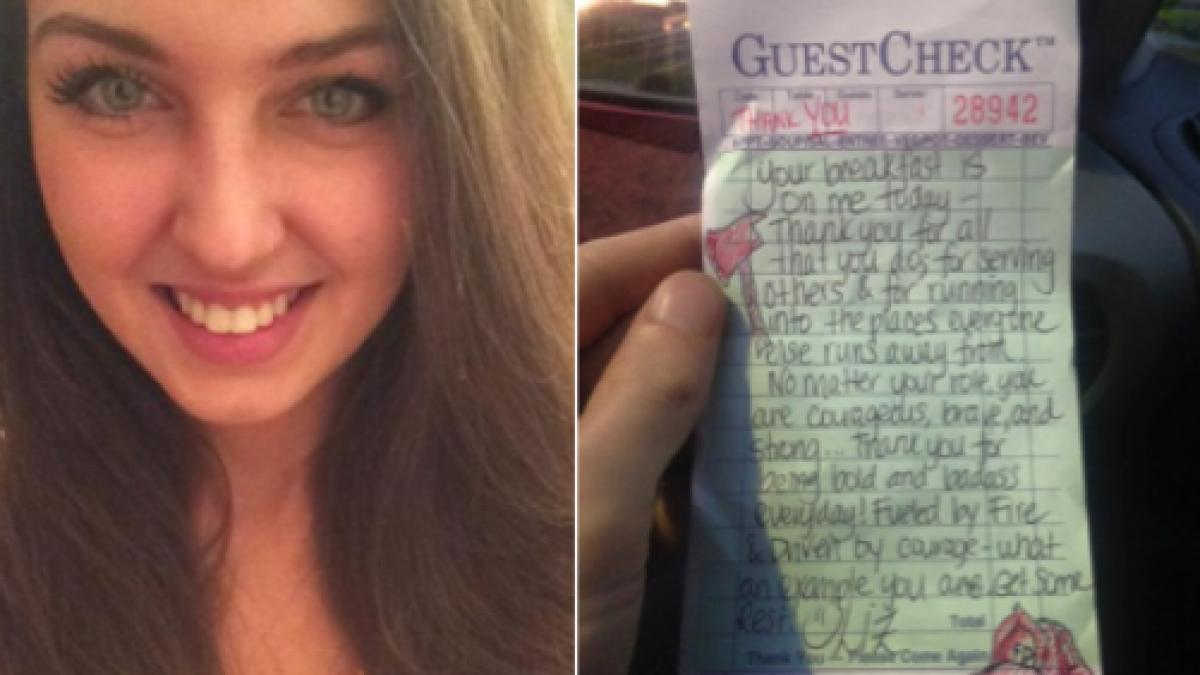 GUESTCHECK™
Date Table Guests Server
THANK YOU 28942
your breakfast is
on me today -
Thank you for all
that you do; for serving
others & for running
into the places everyone
else runs away from
No matter your role, you
are courageous, brave, and
strong... Thank you for
being bold and badass
everyday! Fueled by Fire
& Driven by courage - what
an example you are. Get some
Rest. Liz
Total
Thank You - Please Come Again